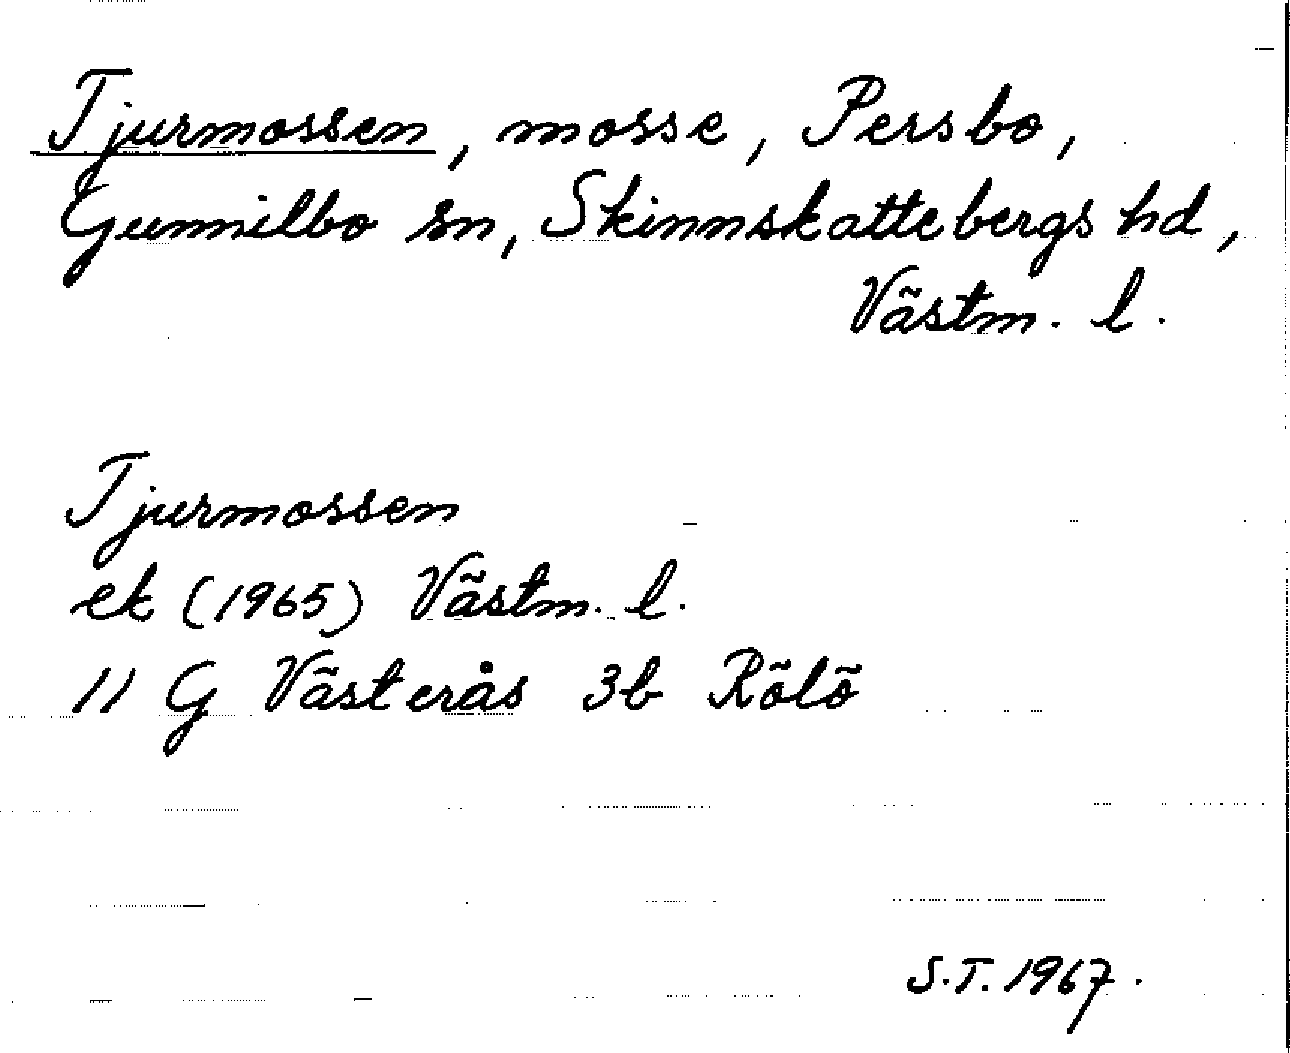 Tjurmossen, mosse, Persbo,
Gunnilbo sn, Skinnskattebergs hd,
Västm. l.
Tjurmossen
ek (1965) Västm. l.
11 G Västerås 3b Rölö
S.T. 1967.